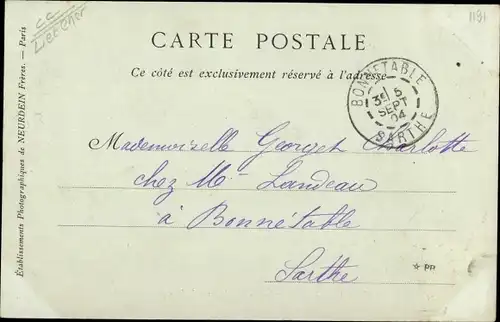 1191
CARTE POSTALE
Ce côté est exclusivement réservé à l'adresse
BONNETABLE
3E 5
SEPT
04
SARTHE
Mademoiselle Georget Charlotte
chez Mr Landeau
à Bonnetable
Sarthe
PP
Établissements Photographiques de NEURDEIN Frères. — Paris